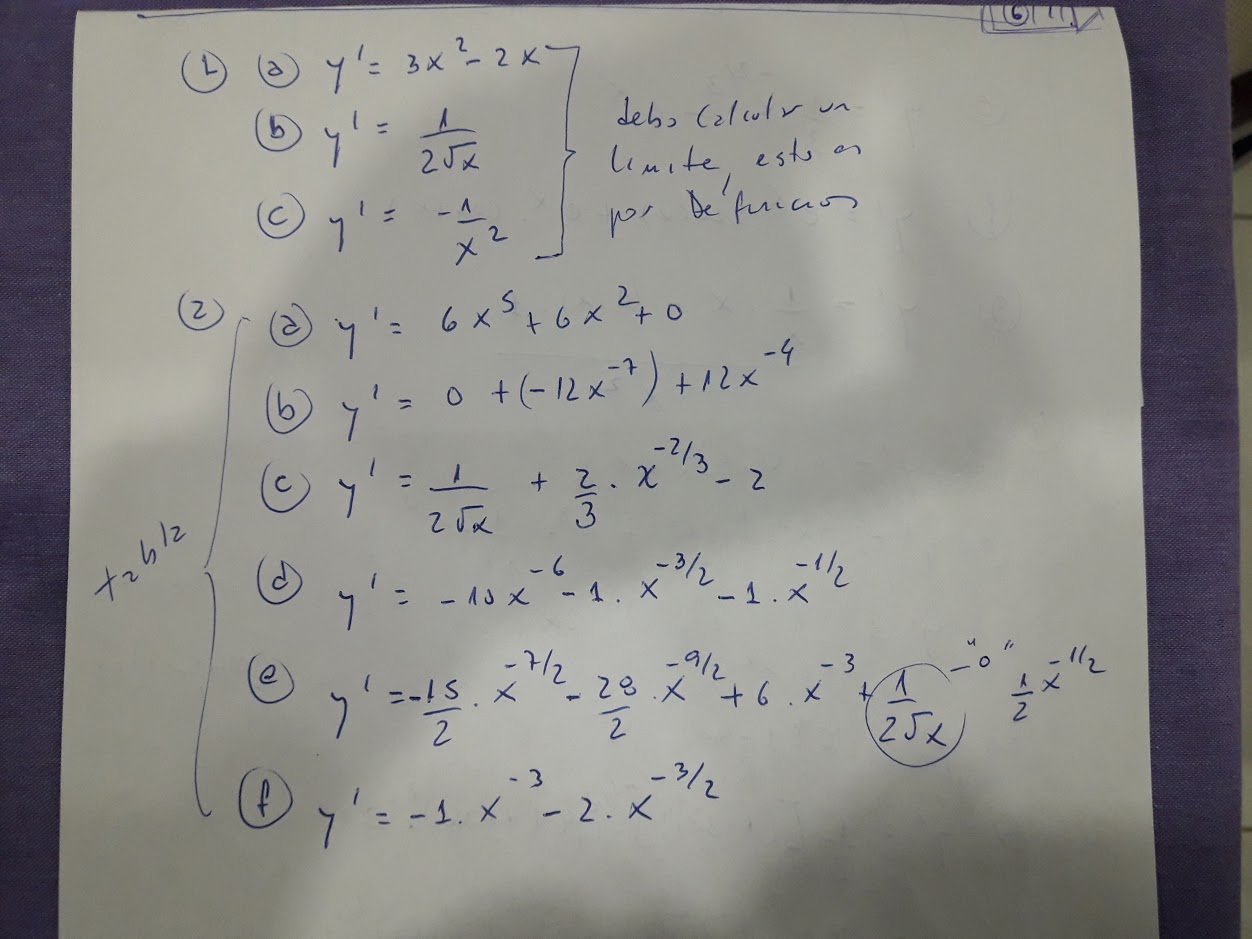 6
① ⓐ y' = 3x² - 2x
ⓑ y' = 1/(2√x)
ⓒ y' = -1/x²
debo calcular un
limite, esto es
por Definicion
② ⓐ y' = 6x⁵ + 6x² + 0
ⓑ y' = 0 + (-12x⁻⁷) + 12x⁻⁴
ⓒ y' = 1/(2√x) + 2/3 · x^(-2/3) - 2
ⓓ y' = -10x⁻⁶ - 1 · x^(-3/2) - 1 · x^(-1/2)
ⓔ y' = -15/2 · x^(-7/2) - 28/2 · x^(-9/2) + 6 · x⁻³ + 1/(2√x) - "0" 1/2 x^(-1/2)
ⓕ y' = -1 · x⁻³ - 2 · x^(-3/2)